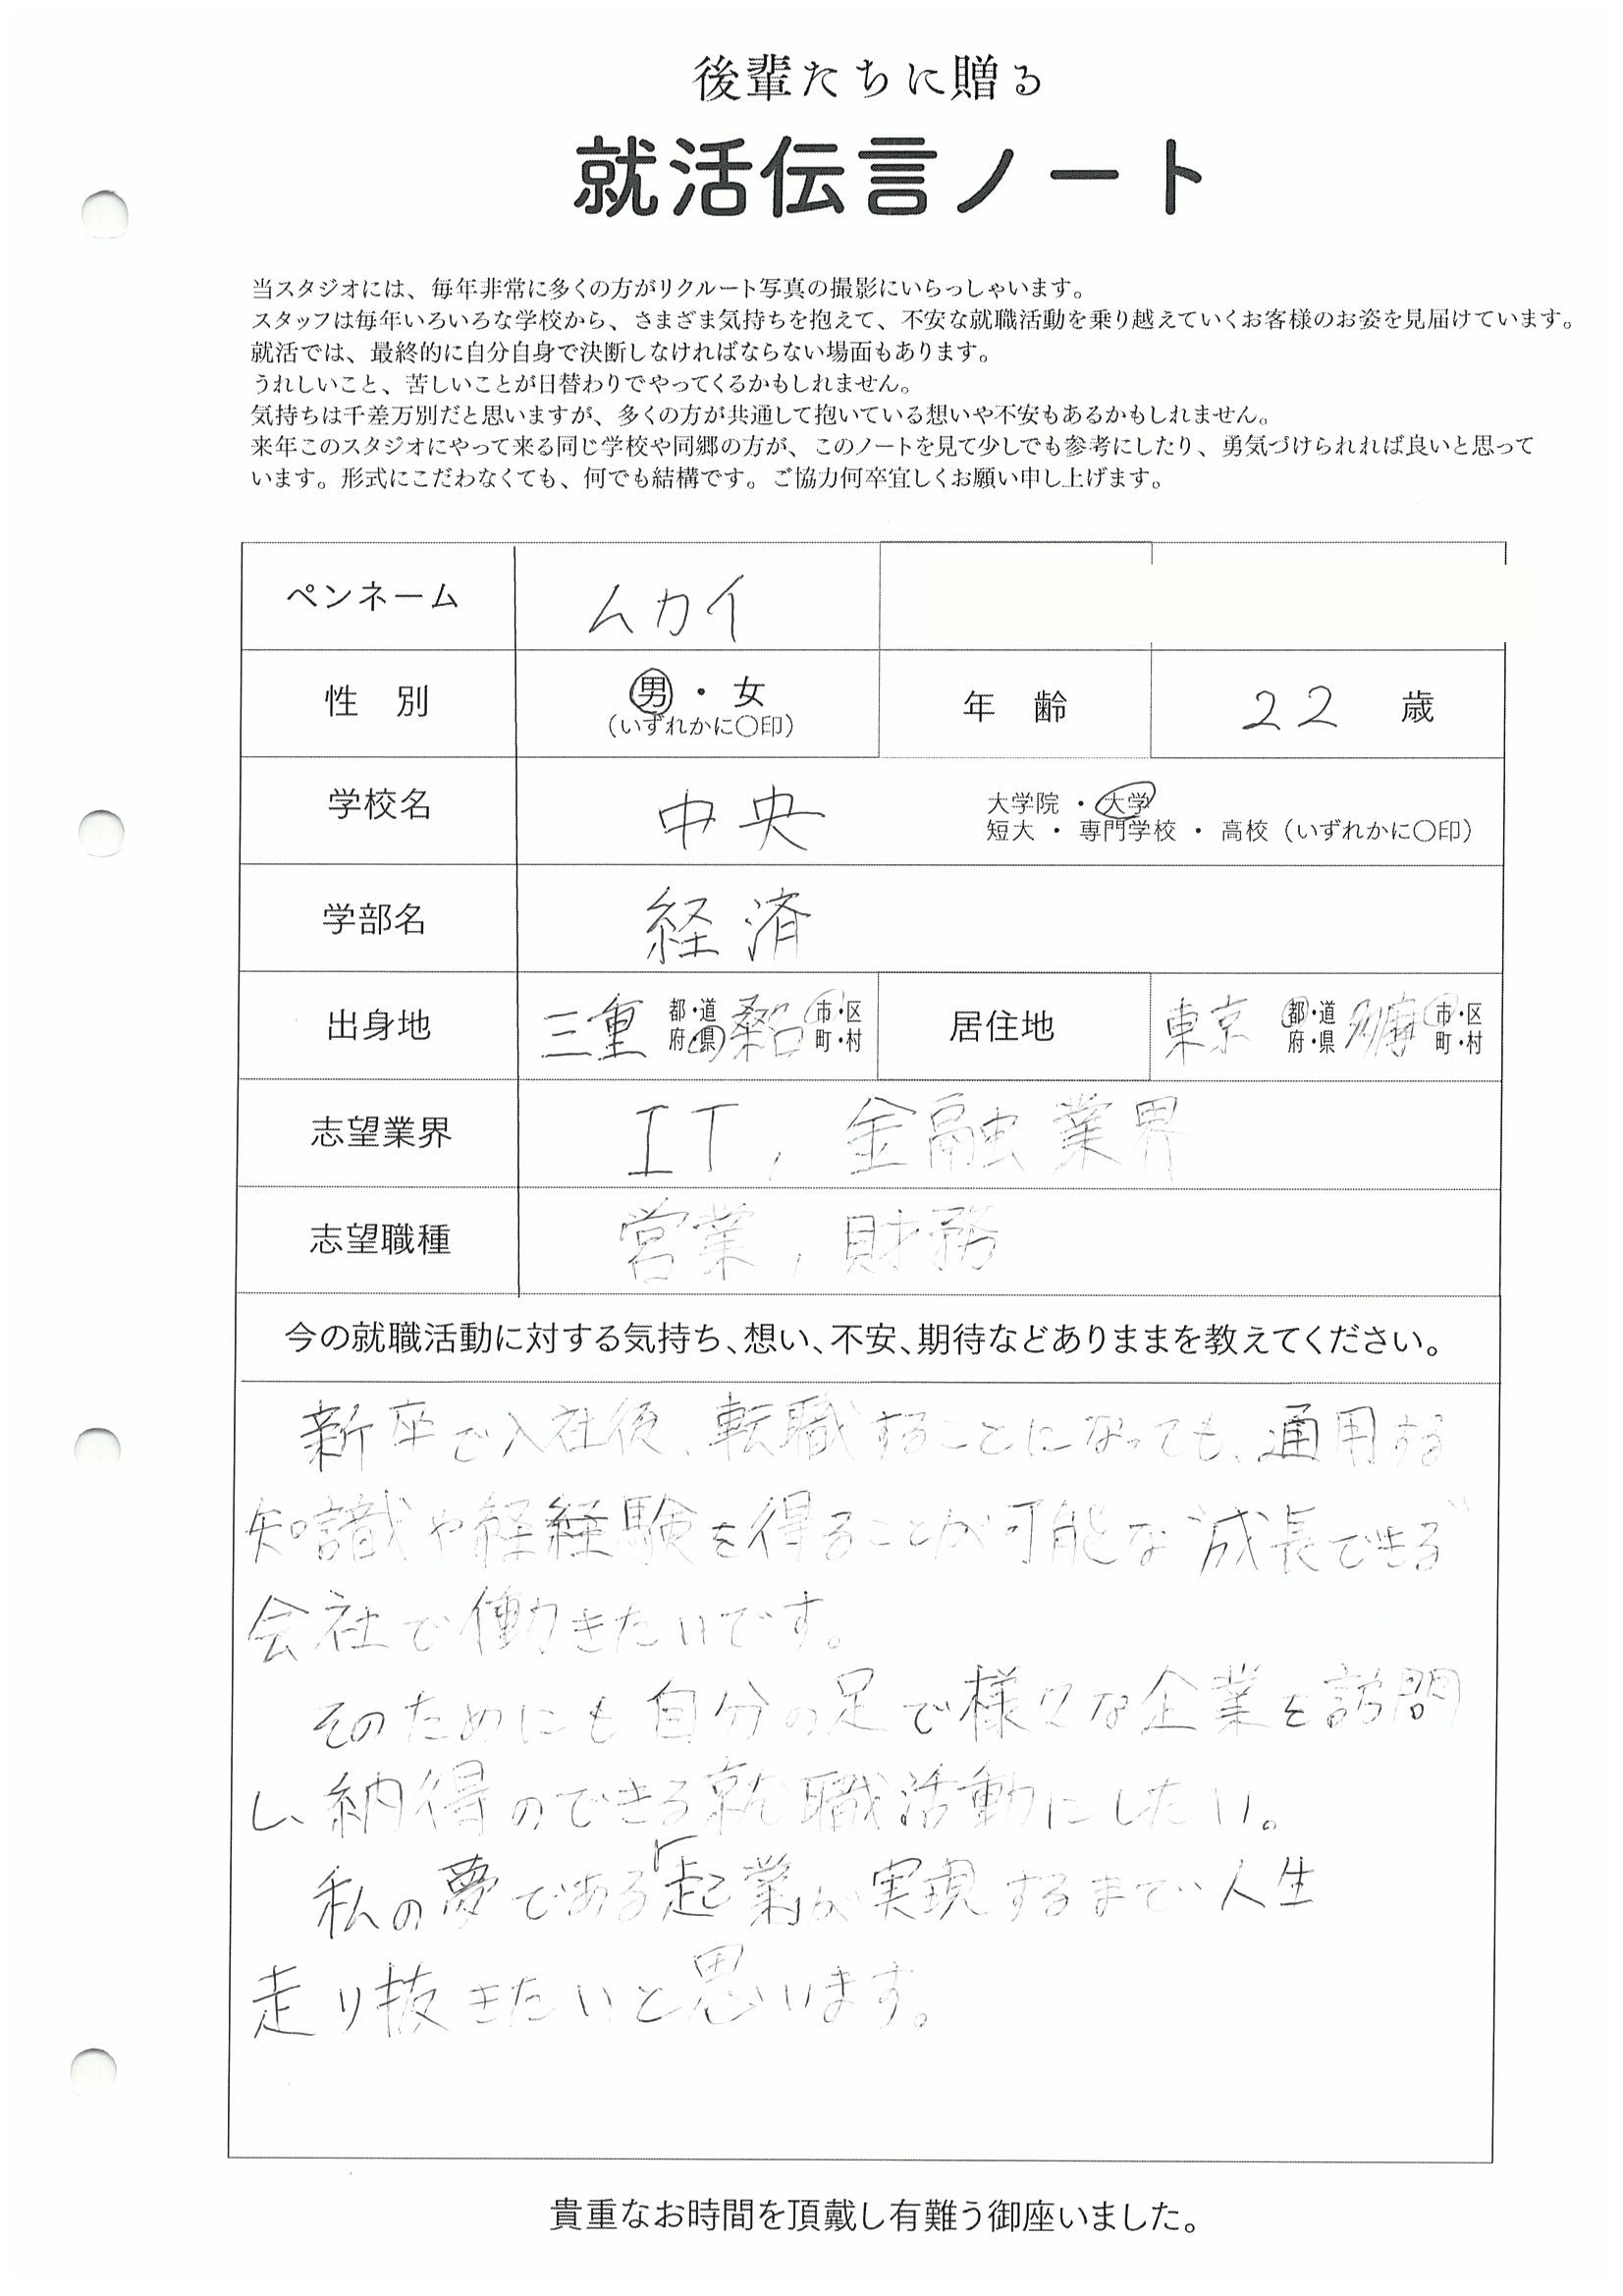 後輩たちに贈る
就活伝言ノート
当スタジオには、毎年非常に多くの方がリクルート写真の撮影にいらっしゃいます。
スタッフは毎年いろいろな学校から、さまざま気持ちを抱えて、不安な就職活動を乗り越えていくお客様のお姿を見届けています。
就活では、最終的に自分自身で決断しなければならない場面もあります。
うれしいこと、苦しいことが日替わりでやってくるかもしれません。
気持ちは千差万別だと思いますが、多くの方が共通して抱いている想いや不安もあるかもしれません。
来年このスタジオにやって来る同じ学校や同郷の方が、このノートを見て少しでも参考にしたり、勇気づけられれば良いと思って
います。形式にこだわなくても、何でも結構です。ご協力何卒宜しくお願い申し上げます。
ペンネーム ムカイ
性 別 男・女 年 齢 22 歳
(いずれかに〇印)
学校名 中央 大学院・大学
短大・専門学校・高校(いずれかに〇印)
学部名 経済
出身地 三重 都・道 桑名 市・区 居住地 東京 都・道 市・区
府・県 町・村 府・県 町・村
志望業界 IT, 金融業界
志望職種 営業, 財務
今の就職活動に対する気持ち、想い、不安、期待などありままを教えてください。
新卒で入社後、転職することになっても、通用する
知識や経経験を得ることが可能な成長できる
会社で働きたいです。
そのためにも自分の足で様々な企業を訪問
し、納得のできる就職活動にしたい。
私の夢である「起業」が実現するまで人生
走り抜きたいと思います。
貴重なお時間を頂戴し有難う御座いました。